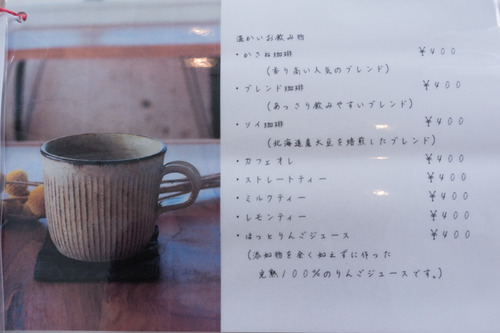 温かいお飲み物
・かさね珈琲 ¥400
(香り高い人気のブレンド)
・ブレンド珈琲 ¥400
(あっさり飲みやすいブレンド)
・ソイ珈琲 ¥400
(北海道産大豆を焙煎したブレンド)
・カフェオレ ¥400
・ストレートティー ¥400
・ミルクティー ¥400
・レモンティー ¥400
・ほっとりんごジュース ¥400
(添加物を全く加えずに作った
完熟100%のりんごジュースです。)